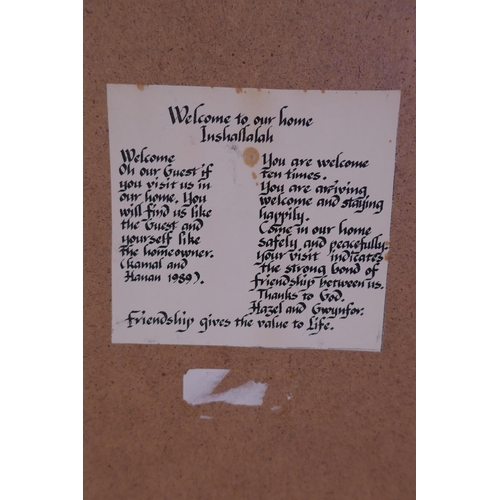 Welcome to our home
Inshallalah
Welcome
Oh our Guest if
you visit us in
our home. You
will find us like
the Guest and
yourself like
the homeowner.
(Kamal and
Hanan 1989).
You are welcome
ten times.
You are arriving
welcome and staying
happily.
Come in our home
safely and peacefully.
Your visit indicates
the strong bond of
friendship between us.
Thanks to God.
Hazel and Gwynfor.
Friendship gives the value to Life.